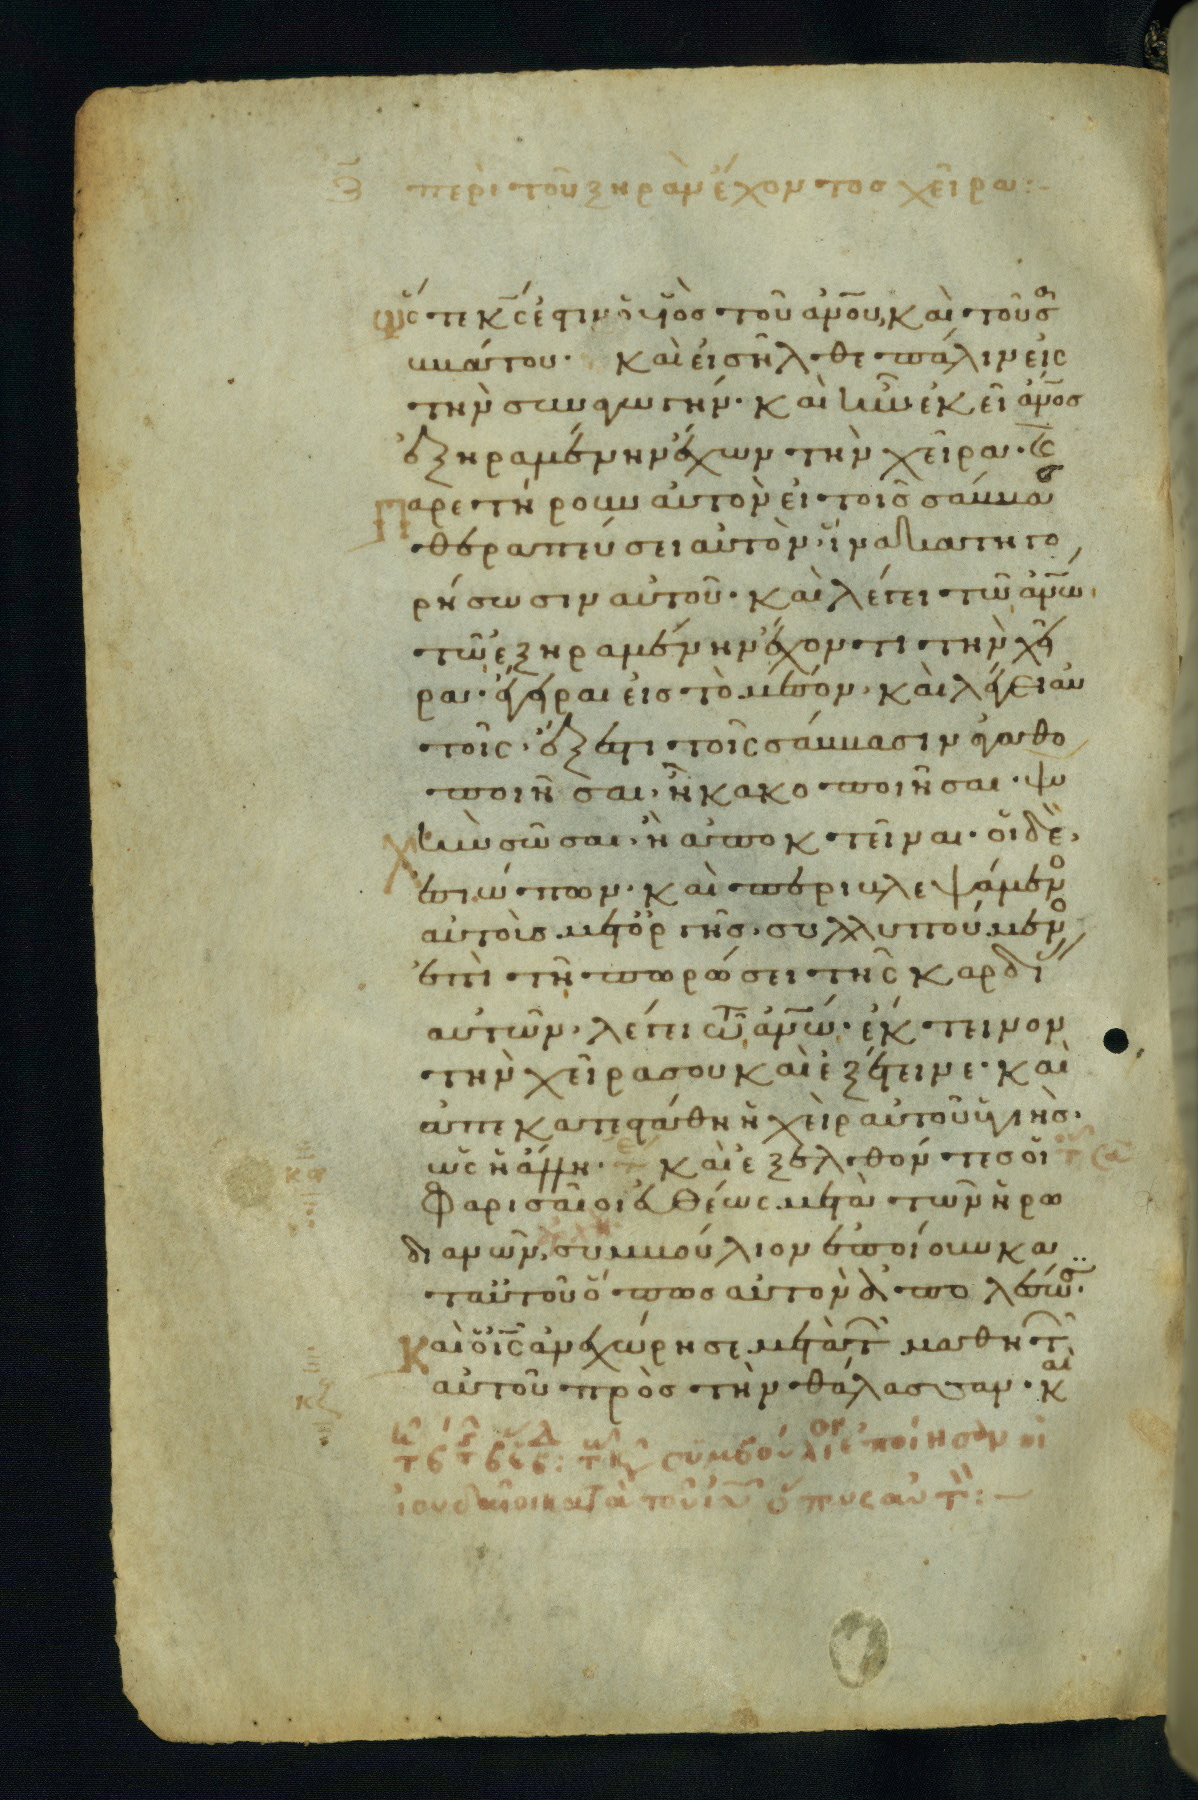 περὶ τοῦ ξηρὰν ἔχοντος χεῖρα:
ὥστε κ̅ς̅ ἐστιν ὁ υἱὸς τοῦ ἀν̅ου, καὶ τοῦ σ
ββάτου. καὶ εἰσῆλθε πάλιν εἰς
τὴν συναγωγήν. καὶ ἦν ἐκεῖ ἀν̅ος
ἐξηραμένην ἔχων τὴν χεῖρα. κ
παρετήρουν αὐτὸν εἰ τοῖς σάββα
θεραπεύσει αὐτὸν, ἵνα κατηγο
ρήσωσιν αὐτοῦ. καὶ λέγει τῷ ἀν̅ω,
τῷ ἐξηραμένην ἔχοντι τὴν χεῖ
ρα. ἔγειραι εἰς τὸ μέσον. καὶ λέγει αὐ
τοῖς. ἔξεστι τοῖς σάββασιν ἀγαθο
ποιῆσαι, ἢ κακοποιῆσαι. ψυ
χὴν σῶσαι, ἢ ἀποκτεῖναι. οἱ δὲ,
ἐσιώπων. καὶ περιβλεψάμενο
αὐτοὺς μετ ὀργῆς. συλλυπούμενο
ἐπὶ τῇ πωρώσει τῆς καρδί
αὐτῶν. λέγει τῷ ἀν̅ω. ἔκτεινον
τὴν χεῖρα σου καὶ ἐξέτεινε. καὶ
ἀπεκατεστάθη ἡ χεὶρ αὐτοῦ ὑγιὴς.
ὡς ἡ ἄλλη. καὶ ἐξελθόντες οἱ
φαρισαῖοι εὐθέως μετὰ τῶν ἡρω
διανῶν, συμβούλιον ἐποίουν κα
τ αὐτοῦ ὅπως αὐτὸν ἀπολέσωσ.
Καὶ ὁ ι̅ς̅ ἀνεχώρησε μετὰ τ μαθητ
αὐτοῦ πρὸς τὴν θάλασσαν. καὶ
συμβούλιον ἐποίησαν οἱ
ἰουδαῖοι κατὰ τοῦ ι̅υ̅ ὅπως αὐτ:
κζ